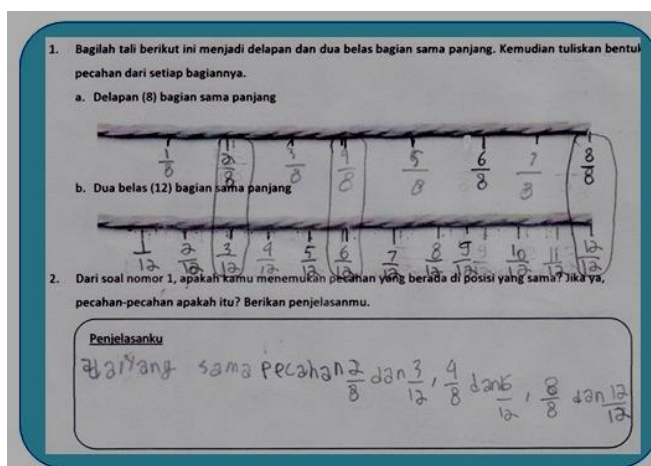 1. Bagilah tali berikut ini menjadi delapan dan dua belas bagian sama panjang. Kemudian tuliskan bentuk
pecahan dari setiap bagiannya.
a. Delapan (8) bagian sama panjang
1/8 2/8 3/8 4/8 5/8 6/8 7/8 8/8
b. Dua belas (12) bagian sama panjang
1/12 2/12 3/12 4/12 5/12 6/12 7/12 8/12 9/12 10/12 11/12 12/12
2. Dari soal nomor 1, apakah kamu menemukan pecahan yang berada di posisi yang sama? Jika ya,
pecahan-pecahan apakah itu? Berikan penjelasanmu.
Penjelasanku
yang sama pecahan 2/8 dan 3/12, 4/8 dan 6/12, 8/8 dan 12/12